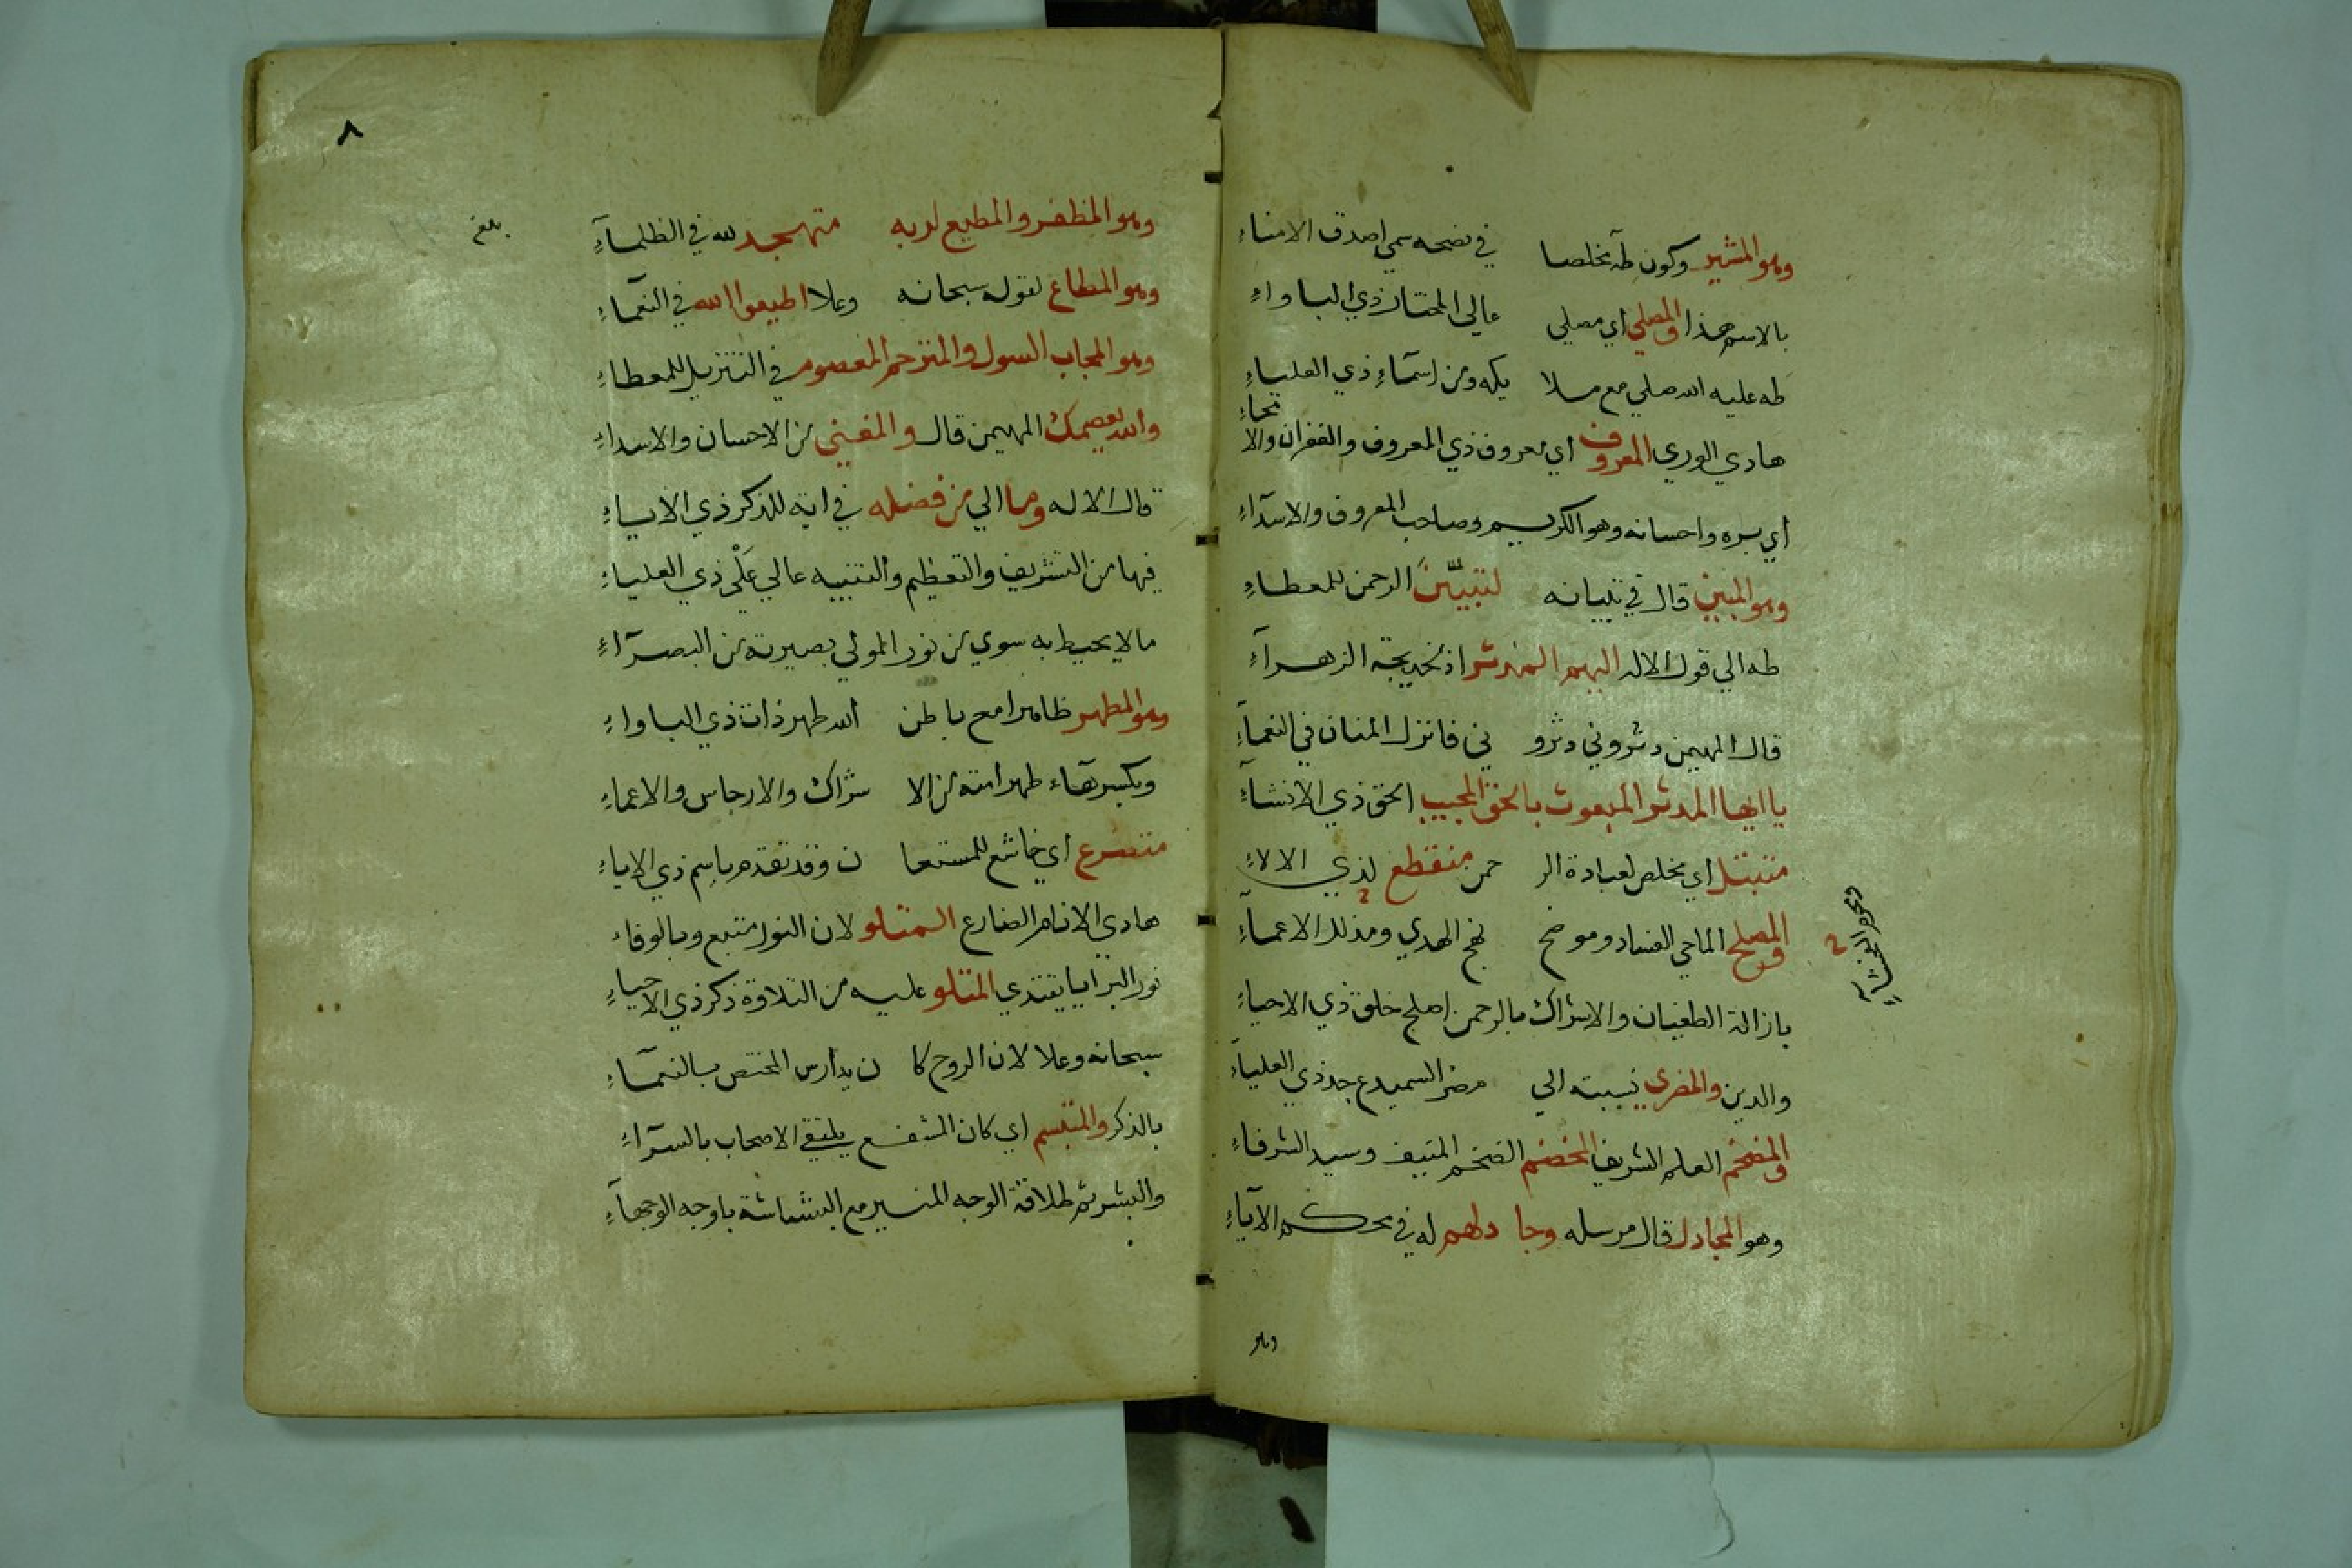 وهو المشير وكون طه مخلصا في نصحه سمي اصدق الامناء
بالاسم هذا والمصلي اي مصلي عالي المختار ذي الباواء
طه عليه الله صلي مع سلا يكه ومن اسمآءِ ذي العلياءِ
هادي الوري المعروف اي معروف ذي المعروف والغفران والا
نحاءِ
أي بسره واحسانه وهو الكريم وصاحب المعروف والاسدآءِ
وهو المبين قال في تبيانه لتبيّننّ الرحمن للمعطاءِ
طه الي قول الاله اليهم المندثر اذ لخديجة الزهرآءِ
قال المهيمن دثروني دثرو ني فانزل المنان في النعمآءِ
يا ايها المدثر المبعوث بالحق المجيب الحق ذي الانشآءِ
متبتل اي مخلص لعبادة الر حمن منقطع لذي الالاءِ
والمصلح الماحي الفساد وموضح نهج الهدي ومذلل الاعمآءِ
بازالة الطغيان والاشراك بالرحمن اصلح خلق ذي الاحياءِ
والدين والمضري نسبته الي مضر السميدع جد ذي العلياءِ
والمفخم العلم الشريف المخضم الضخم المنيف وسيد الشرفاءِ
وهو المجادل قال مرسله وجا دلهم له في محكم الآياءِ
وهو
٨
بلغ
وهو المظفر والمطيع لربه متهجد لله في الظلمآءِ
وهو المطاع لقوله سبحانه وعلا اطيعوا الله في النعمآءِ
وهو المجاب السول والمترحم المعصوم في التنزيل للمعطاءِ
والله يعصمك المهيمن قال والمغني من الاحسان والاسداءِ
قال الاله وما الي من فضله في ايه للذكر ذي الاياءِ
فيها من التشريف والتعظيم والتنبيه عالي عَلْي ذي العلياءِ
مالا يحيط به سوي من نور المولي بصيرته من البصرآءِ
وهو المطهر ظاهرا مع باطن الله طهر ذات ذي الباواءِ
وبكسر هآء طهر امته من الا شراك والارجاس والاعماءِ
متضرع اي خاشع للمستعا ن وقد تقدم باسم ذي الاياءِ
هادي الانام الضارع المتلو لان النور متبع وبالوفاء
نور البرايا يقتدي المتلو عليه من التلاوة ذكر ذي الاحياءِ
سبحانه وعلا لان الروح كا ن يدارس المختص بالنعمآءِ
بالذكر والمتبسم اي كان المشفع يلتقي الاصحاب بالسرآءِ
والبشر ثم طلاقة الوجه المنير مع البشاشة يا وجه الوجهآءِ